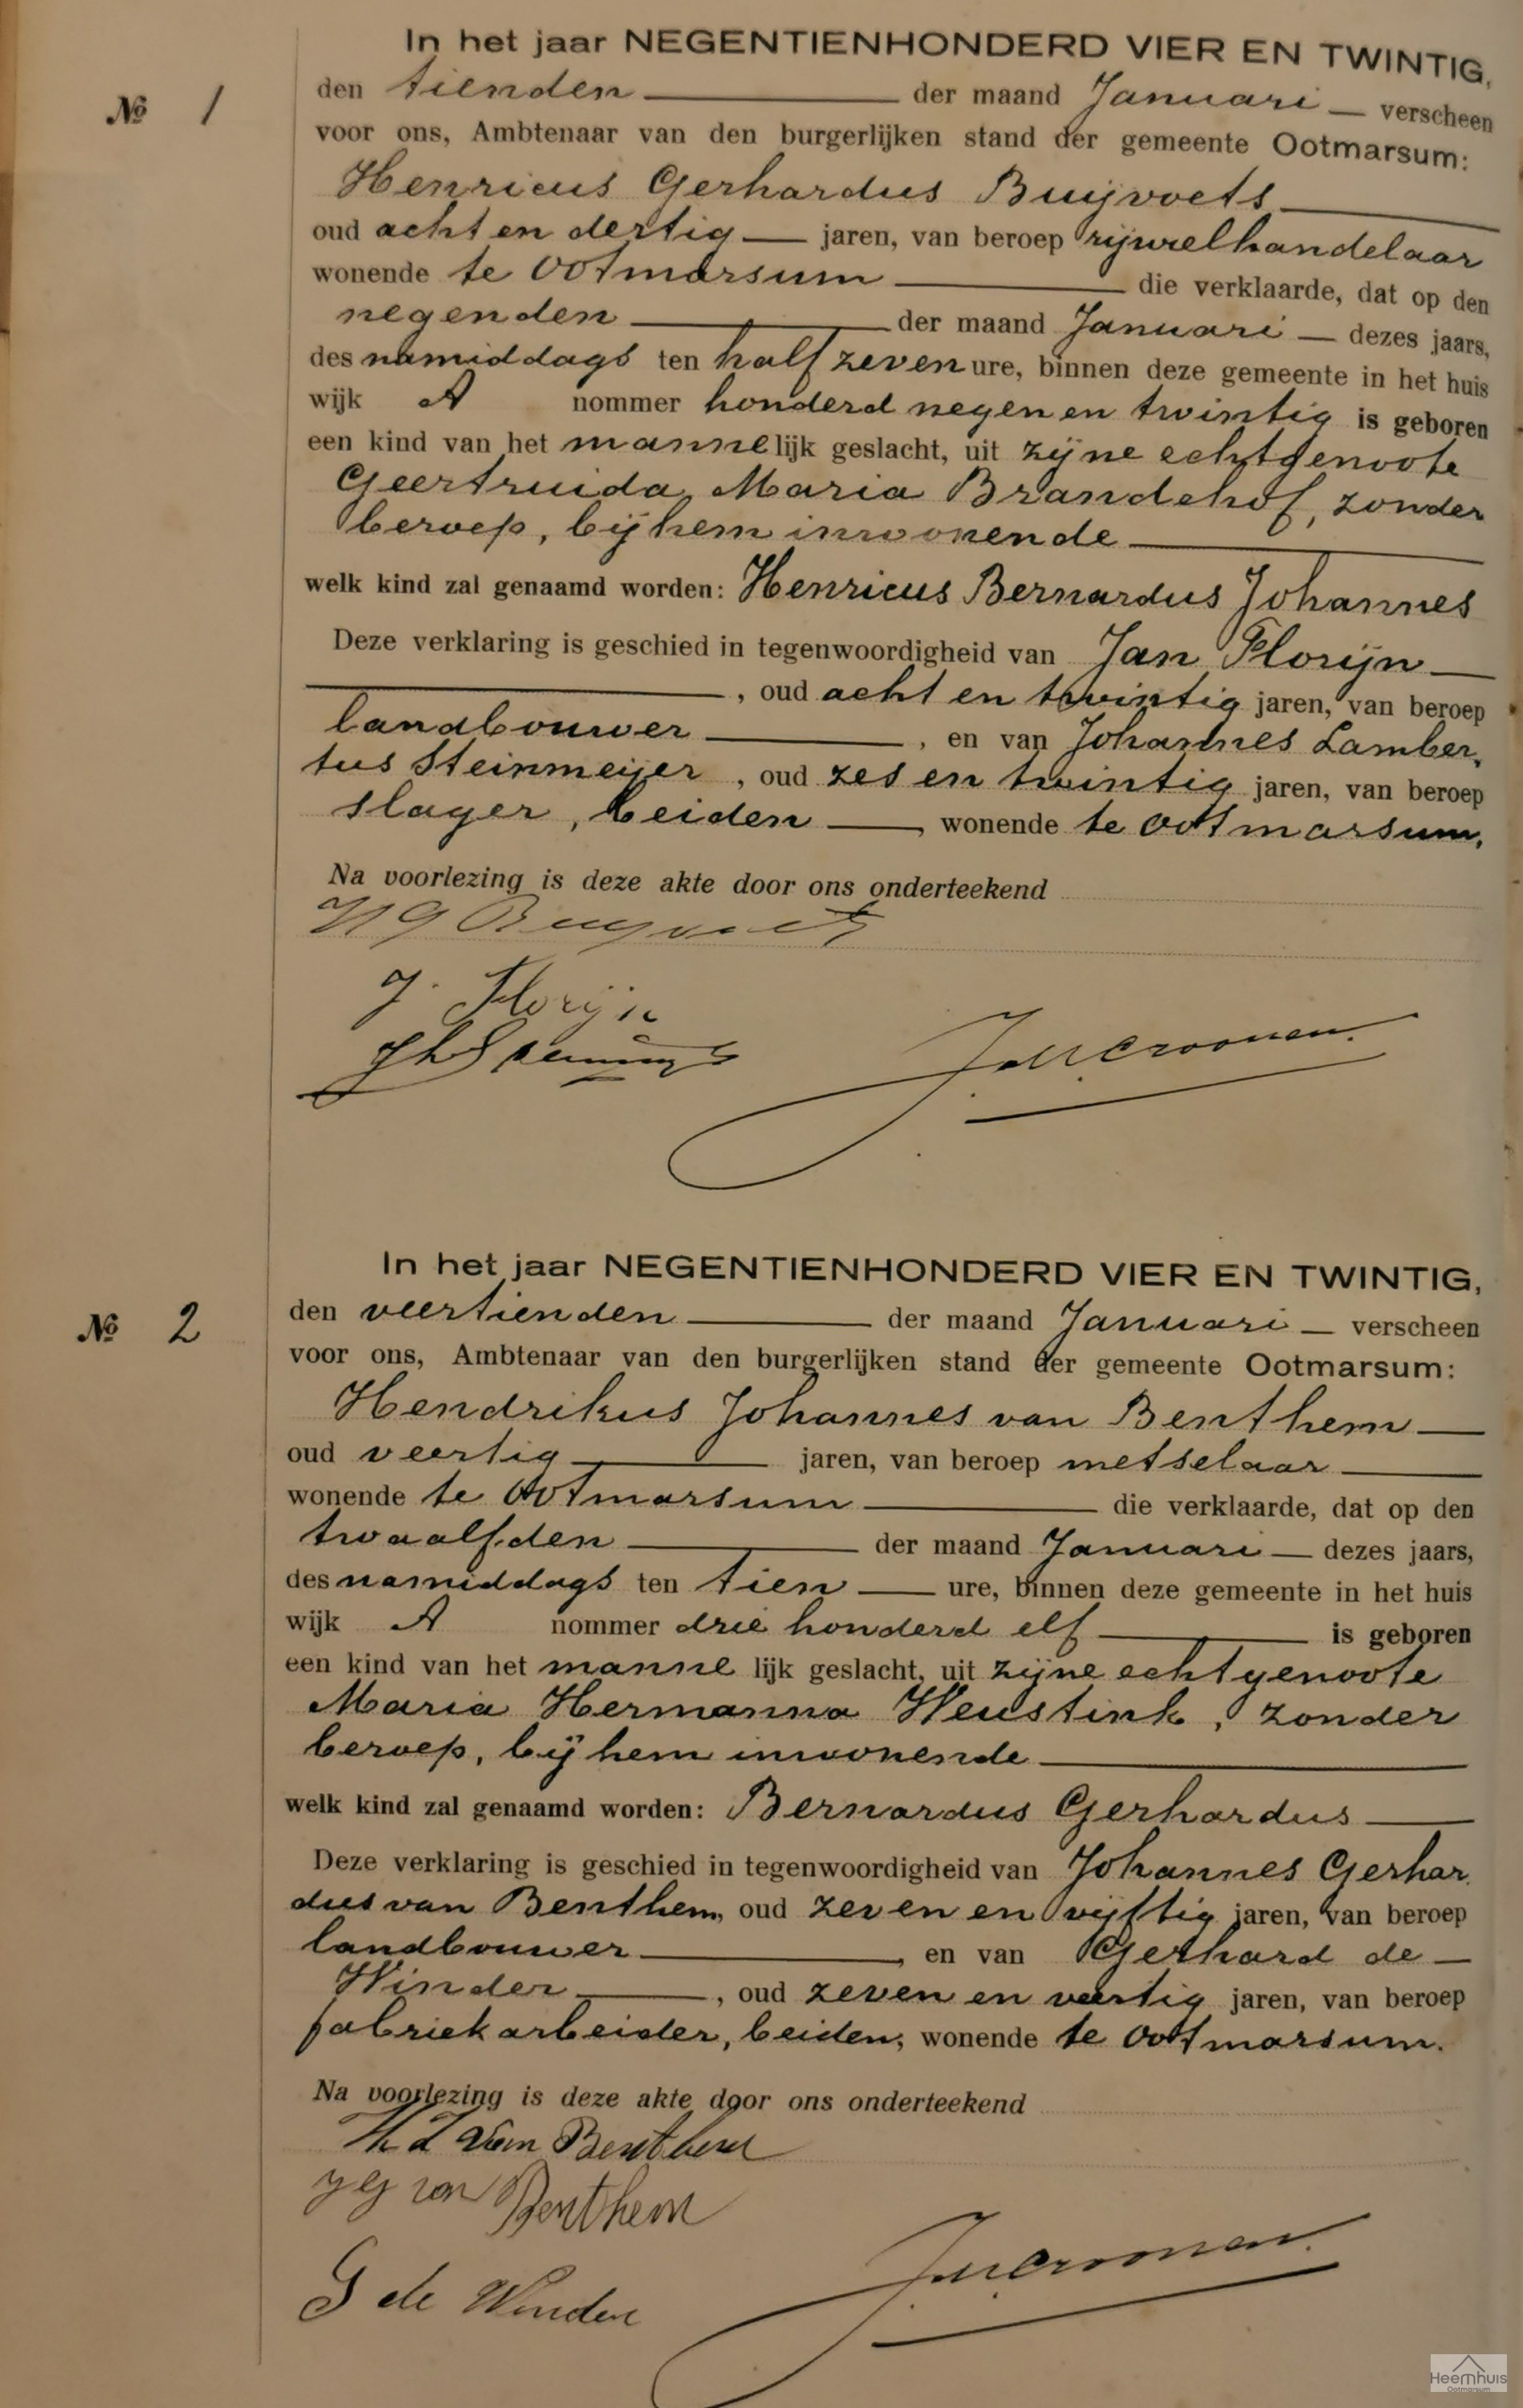 In het jaar NEGENTIENHONDERD VIER EN TWINTIG,
№ 1
den tienden der maand Januari verscheen
voor ons, Ambtenaar van den burgerlijken stand der gemeente Ootmarsum:
Henricus Gerhardus Buijvoets
oud acht en dertig jaren, van beroep rijwielhandelaar
wonende te Ootmarsum die verklaarde, dat op den
negenden der maand Januari dezes jaars,
des namiddags ten half zeven ure, binnen deze gemeente in het huis
wijk A nommer honderd negen en twintig is geboren
een kind van het mannelijk geslacht, uit zijne echtgenoote
Geertruida Maria Brandehof, zonder
beroep, bij hem inwonende
welk kind zal genaamd worden: Henricus Bernardus Johannes
Deze verklaring is geschied in tegenwoordigheid van Jan Florijn
, oud acht en twintig jaren, van beroep
landbouwer , en van Johannes Lamber,
tus Steinmeijer , oud zes en twintig jaren, van beroep
slager, beiden , wonende te Ootmarsum.
Na voorlezing is deze akte door ons onderteekend
HG Buyvoets
J. Florijn
In het jaar NEGENTIENHONDERD VIER EN TWINTIG,
№ 2
den veertienden der maand Januari verscheen
voor ons, Ambtenaar van den burgerlijken stand der gemeente Ootmarsum:
Hendrikus Johannes van Benthem
oud veertig jaren, van beroep metselaar
wonende te Ootmarsum die verklaarde, dat op den
twaalfden der maand Januari dezes jaars,
des namiddags ten tien ure, binnen deze gemeente in het huis
wijk A nommer drie honderd elf is geboren
een kind van het manne lijk geslacht, uit zijne echtgenoote
Maria Hermanna Weustink, zonder
beroep, bij hem inwonende
welk kind zal genaamd worden: Bernardus Gerhardus
Deze verklaring is geschied in tegenwoordigheid van Johannes Gerhar
dus van Benthem, oud zeven en vijftig jaren, van beroep
landbouwer , en van Gerhard de
Winder , oud zeven en veertig jaren, van beroep
fabriekarbeider, beiden, wonende te Ootmarsum.
Na voorlezing is deze akte door ons onderteekend
van Benthem
JG van Benthem
G de Winder
Heemhuis
Ootmarsum